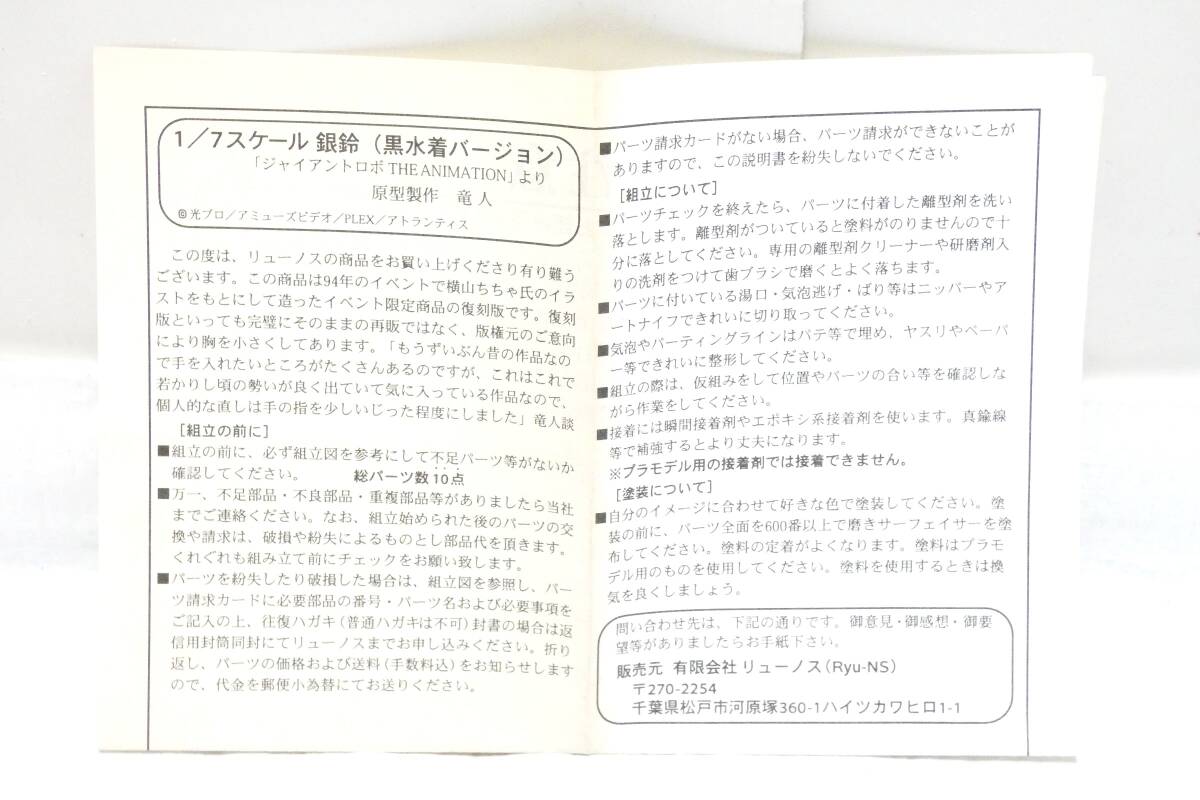 1／7スケール 銀鈴（黒水着バージョン）
「ジャイアントロボ THE ANIMATION」より
原型製作　竜人
©光プロ／アミューズビデオ／PLEX／アトランティス
この度は、リューノスの商品をお買い上げくださり有り難う
ございます。この商品は94年のイベントで横山ちちゃ氏のイラ
ストをもとにして造ったイベント限定商品の復刻版です。復刻
版といっても完璧にそのままの再販ではなく、版権元のご意向
により胸を小さくしてあります。「もうずいぶん昔の作品なの
で手を入れたいところがたくさんあるのですが、これはこれで
若かりし頃の勢いが良く出ていて気に入っている作品なので、
個人的な直しは手の指を少しいじった程度にしました」竜人談
［組立の前に］
■組立の前に、必ず組立図を参考にして不足パーツ等がないか
確認してください。　総パーツ数10点
■万一、不足部品・不良部品・重複部品等がありましたら当社
までご連絡ください。なお、組立始められた後のパーツの交
換や請求は、破損や紛失によるものとし部品代を頂きます。
くれぐれも組み立て前にチェックをお願い致します。
■パーツを紛失したり破損した場合は、組立図を参照し、パー
ツ請求カードに必要部品の番号・パーツ名および必要事項を
ご記入の上、往復ハガキ（普通ハガキは不可）封書の場合は返
信用封筒同封にてリューノスまでお申し込みください。折り
返し、パーツの価格および送料（手数料込）をお知らせします
ので、代金を郵便小為替にてお送りください。
■パーツ請求カードがない場合、パーツ請求ができないことが
ありますので、この説明書を紛失しないでください。
［組立について］
■パーツチェックを終えたら、パーツに付着した離型剤を洗い
落とします。離型剤がついていると塗料がのりませんので十
分に落としてください。専用の離型剤クリーナーや研磨剤入
りの洗剤をつけて歯ブラシで磨くとよく落ちます。
■パーツに付いている湯口・気泡逃げ・ばり等はニッパーやア
ートナイフできれいに切り取ってください。
■気泡やパーティングラインはパテ等で埋め、ヤスリやペーパ
ー等できれいに整形してください。
■組立の際は、仮組みをして位置やパーツの合い等を確認しな
がら作業をしてください。
■接着には瞬間接着剤やエポキシ系接着剤を使います。真鍮線
等で補強するとより丈夫になります。
※プラモデル用の接着剤では接着できません。
［塗装について］
■自分のイメージに合わせて好きな色で塗装してください。塗
装の前に、パーツ全面を600番以上で磨きサーフェイサーを塗
布してください。塗料の定着がよくなります。塗料はプラモ
デル用のものを使用してください。塗料を使用するときは換
気を良くしましょう。
問い合わせ先は、下記の通りです。御意見・御感想・御要
望等がありましたらお手紙下さい。
販売元　有限会社 リューノス（Ryu-NS）
〒270-2254
千葉県松戸市河原塚360-1ハイツカワヒロ1-1